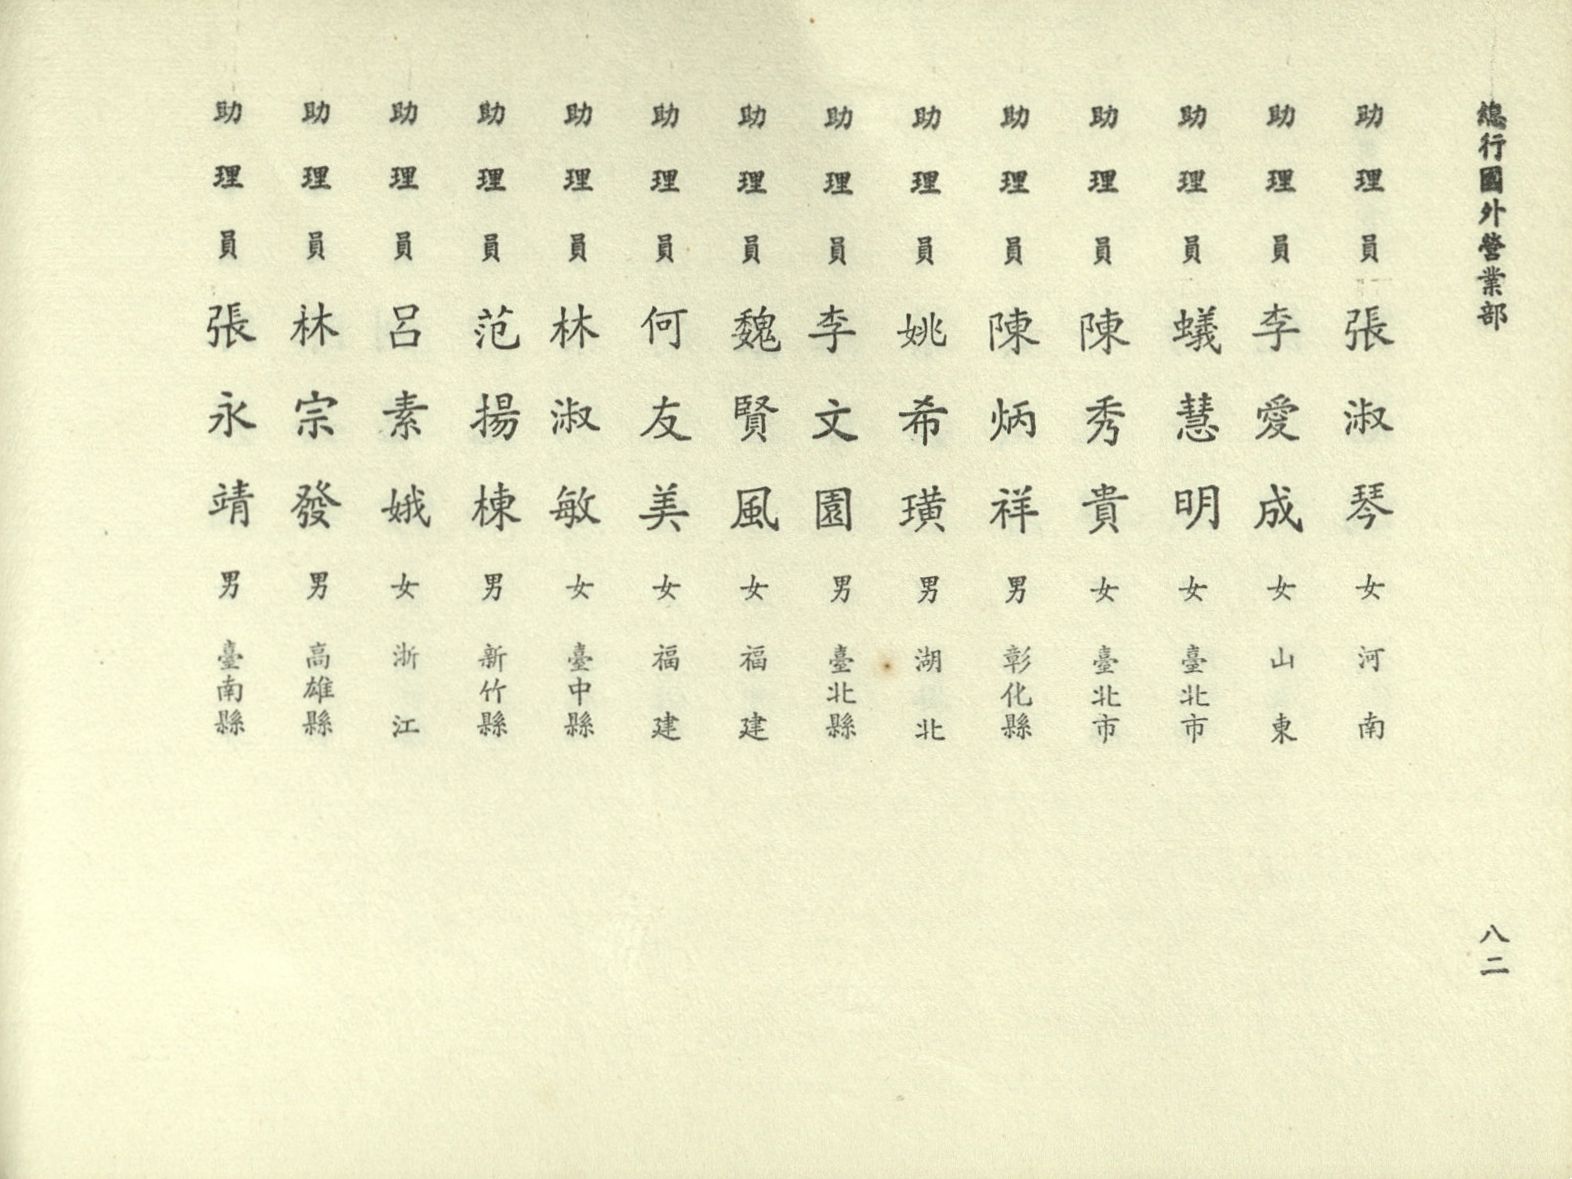 總行國外營業部
八二
助理員 張淑琴 女 河南
助理員 李愛成 女 山東
助理員 蟻慧明 女 臺北市
助理員 陳秀貴 女 臺北市
助理員 陳炳祥 男 彰化縣
助理員 姚希璜 男 湖北
助理員 李文園 男 臺北縣
助理員 魏賢風 女 福建
助理員 何友美 女 福建
助理員 林淑敏 女 臺中縣
助理員 范揚棟 男 新竹縣
助理員 呂素娥 女 浙江
助理員 林宗發 男 高雄縣
助理員 張永靖 男 臺南縣